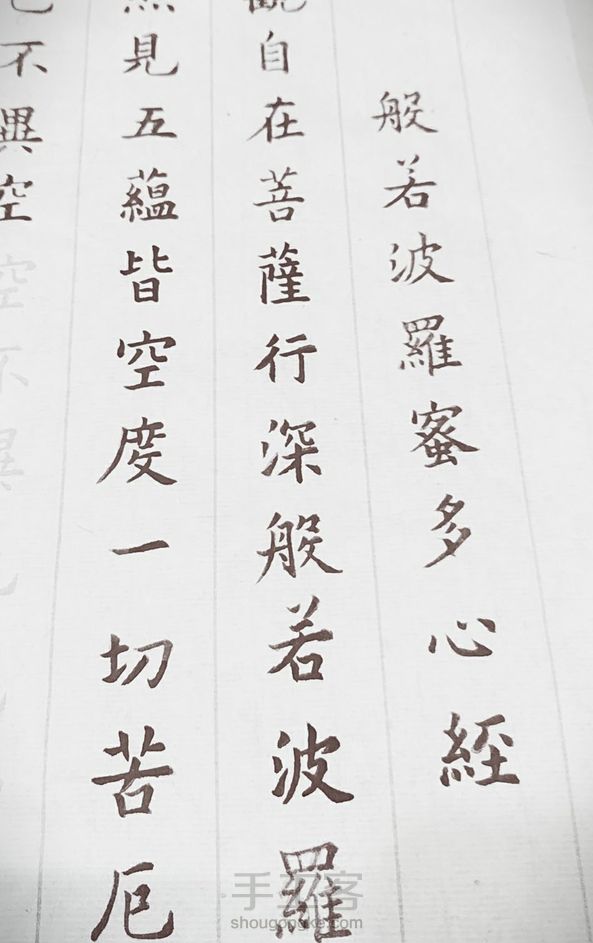 般若波羅蜜多心經
觀自在菩薩行深般若波羅
照見五蘊皆空度一切苦厄
色不異空空不異
手工客
shougongke.com